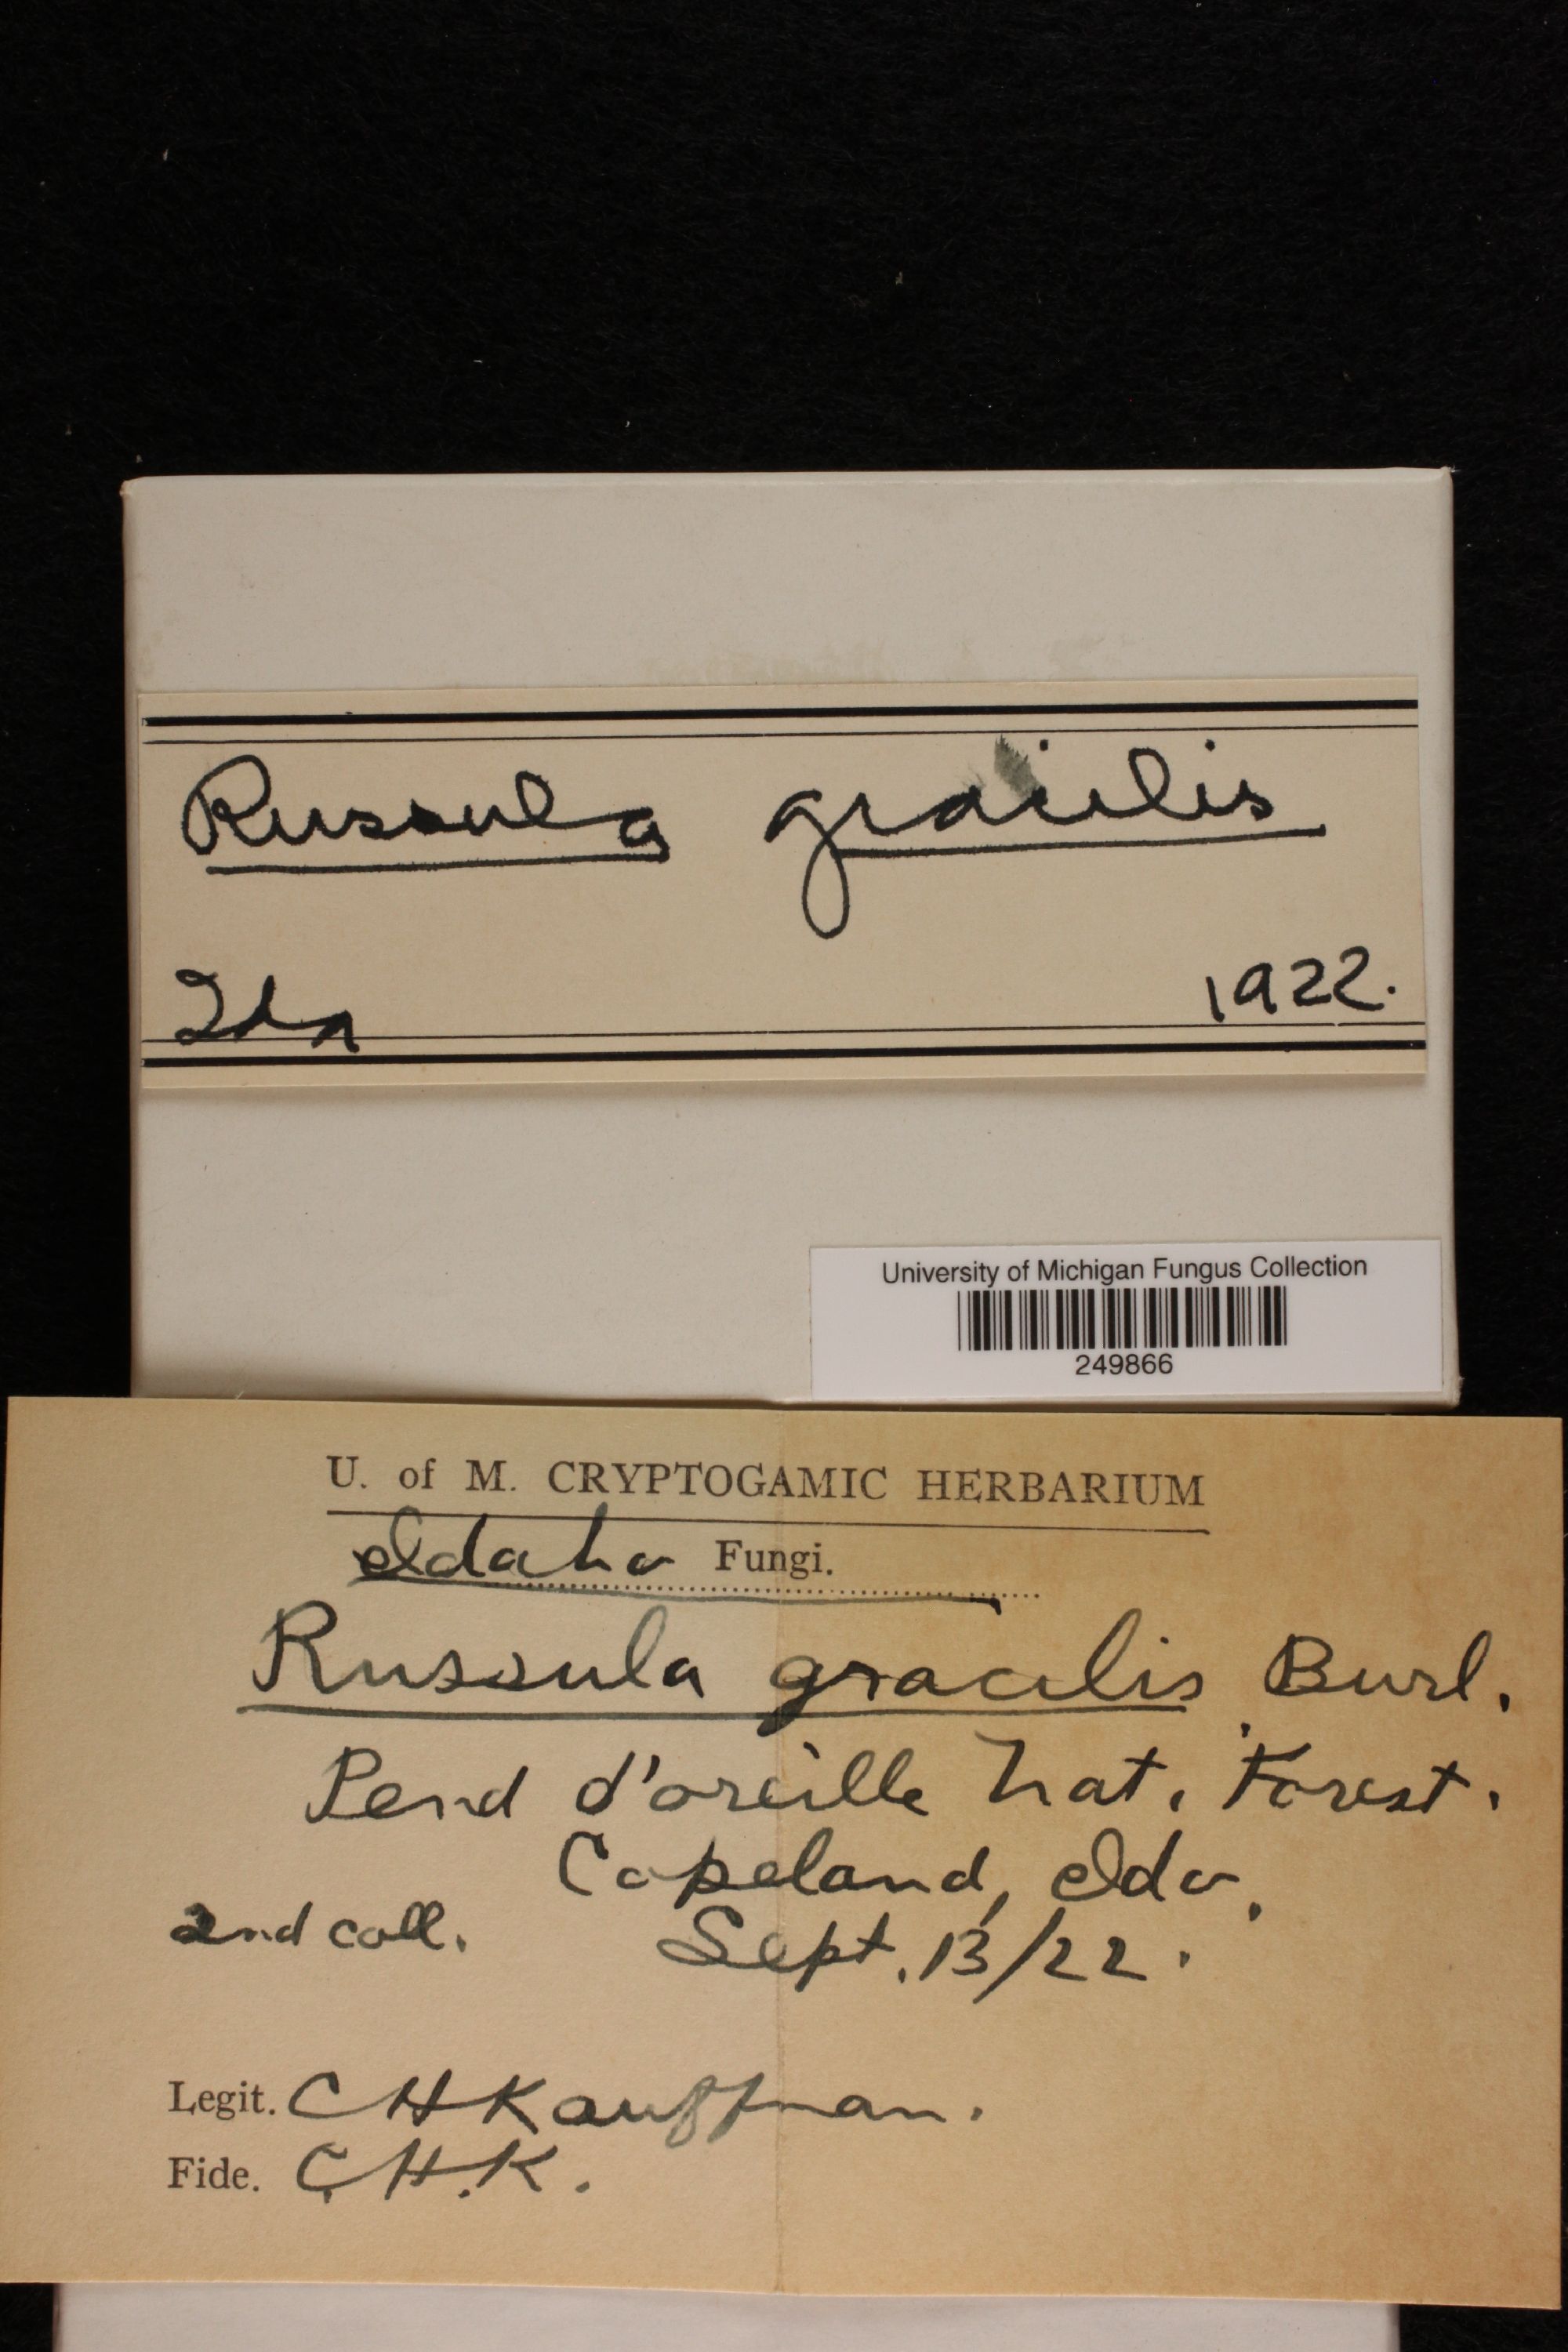 Russula gracilis
Ida 1922.
University of Michigan Fungus Collection
249866
U. of M. CRYPTOGAMIC HERBARIUM
Idaho Fungi.
Russula gracilis Burl.
Pend d'oreille Nat. Forest.
Copeland, Ida.
2nd coll. Sept. 13/22.
Legit. C H Kauffman.
Fide. C.H.K.